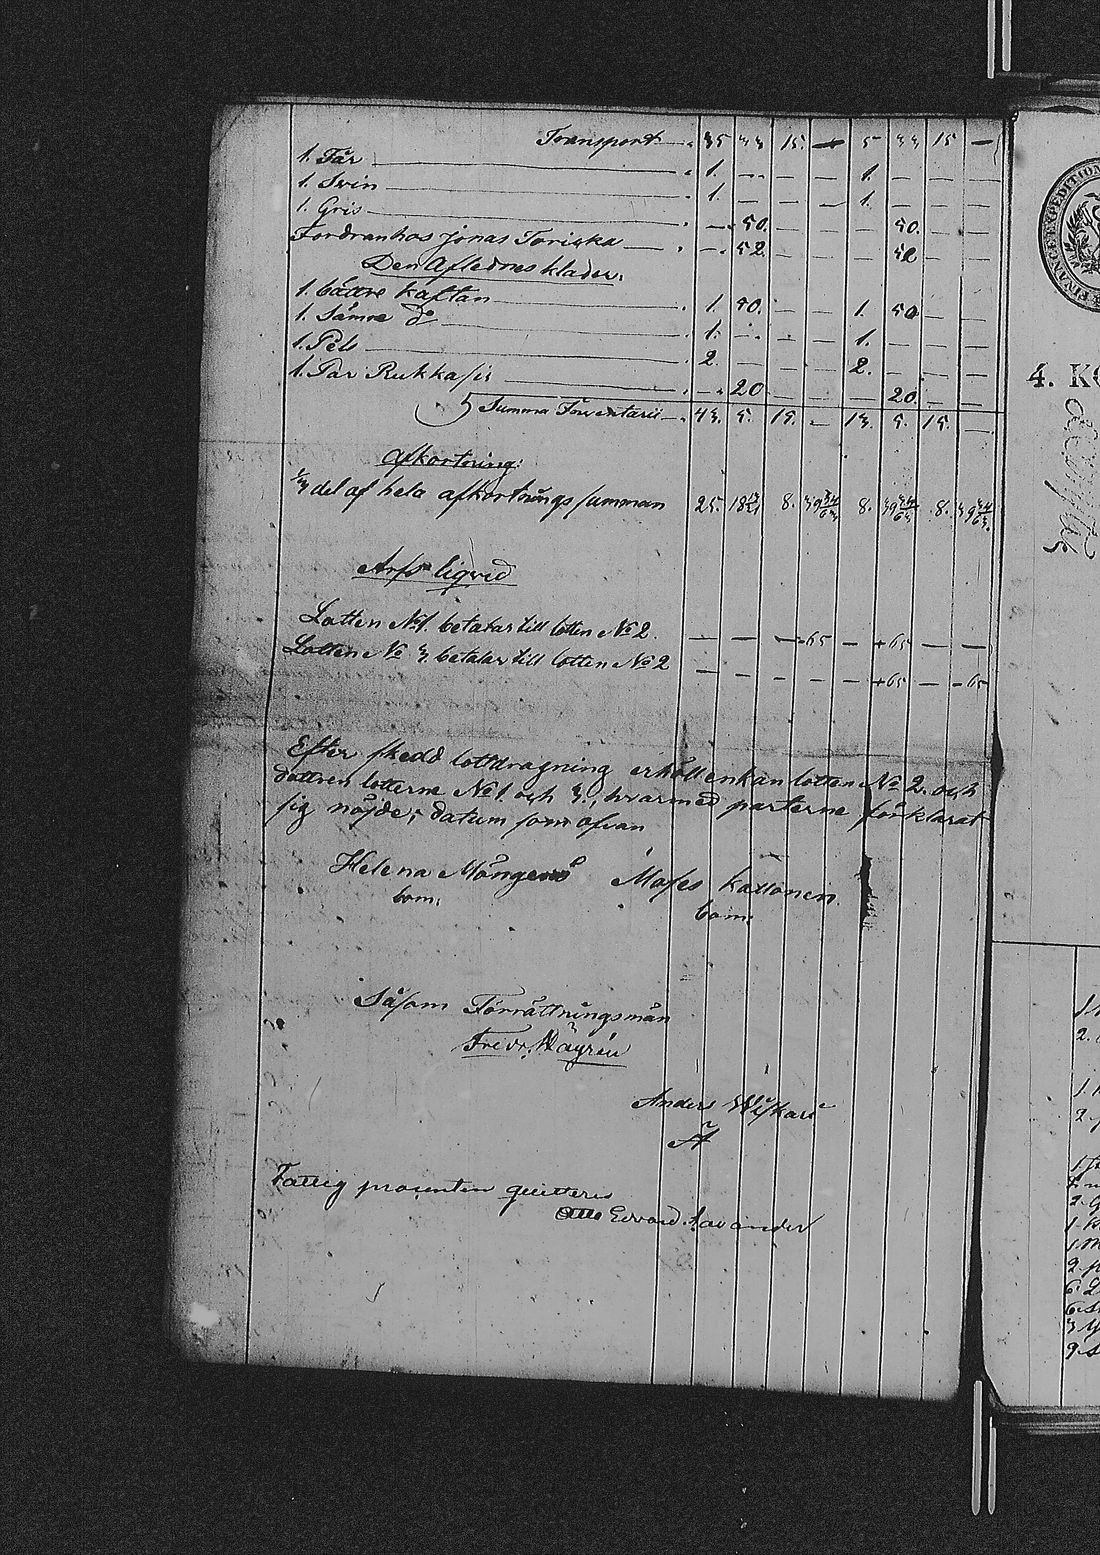 Transport 35 33 15 — 5 33 15 —
1. Får 1. — — — 1. — — —
1. Svin 1. — — — 1. — — —
1. Gris — 50. — — — 50. — —
Fordran hos Jonas Toriska — 52 — — — 52 — —
Den Aflednes kläder.
1. bättre kaftan 1. 50. — — 1. 50 — —
1. Sämre do 1. — — — 1. — — —
1. Pels 2. — — — 2. — — —
1. Par Rukkasis — 20 — — — 20 — —
Summa Inventarii 43. 5. 15. — 13. 5. 15. —
Afkortning:
1/3 del af hela afkortnings summan 25. 18 8. 39 34/63 8. 39 34/63 8. 39 34/63
Arfs liqvid
Lotten No 1. betalar till lotten No 2. — — — 65 — +65 — —
Lotten No 3. betalar till lotten No 2 — — — — — +65 — -65
Efter skedd lottdragning erhöll enkan lotten No 2. och
dottren lotterne No 1. och 3., hvarmed parterne förklarat
sig nöjde; datum som ofvan
Helena Mångens Mases Kattonen.
bom. bom.
Såsom Förrättningsmän
Fredr. Häyrén
Anders
Fattig procenten quitteras
Otto Edvard Lavander
FINANCEEXPEDITION
4. KO